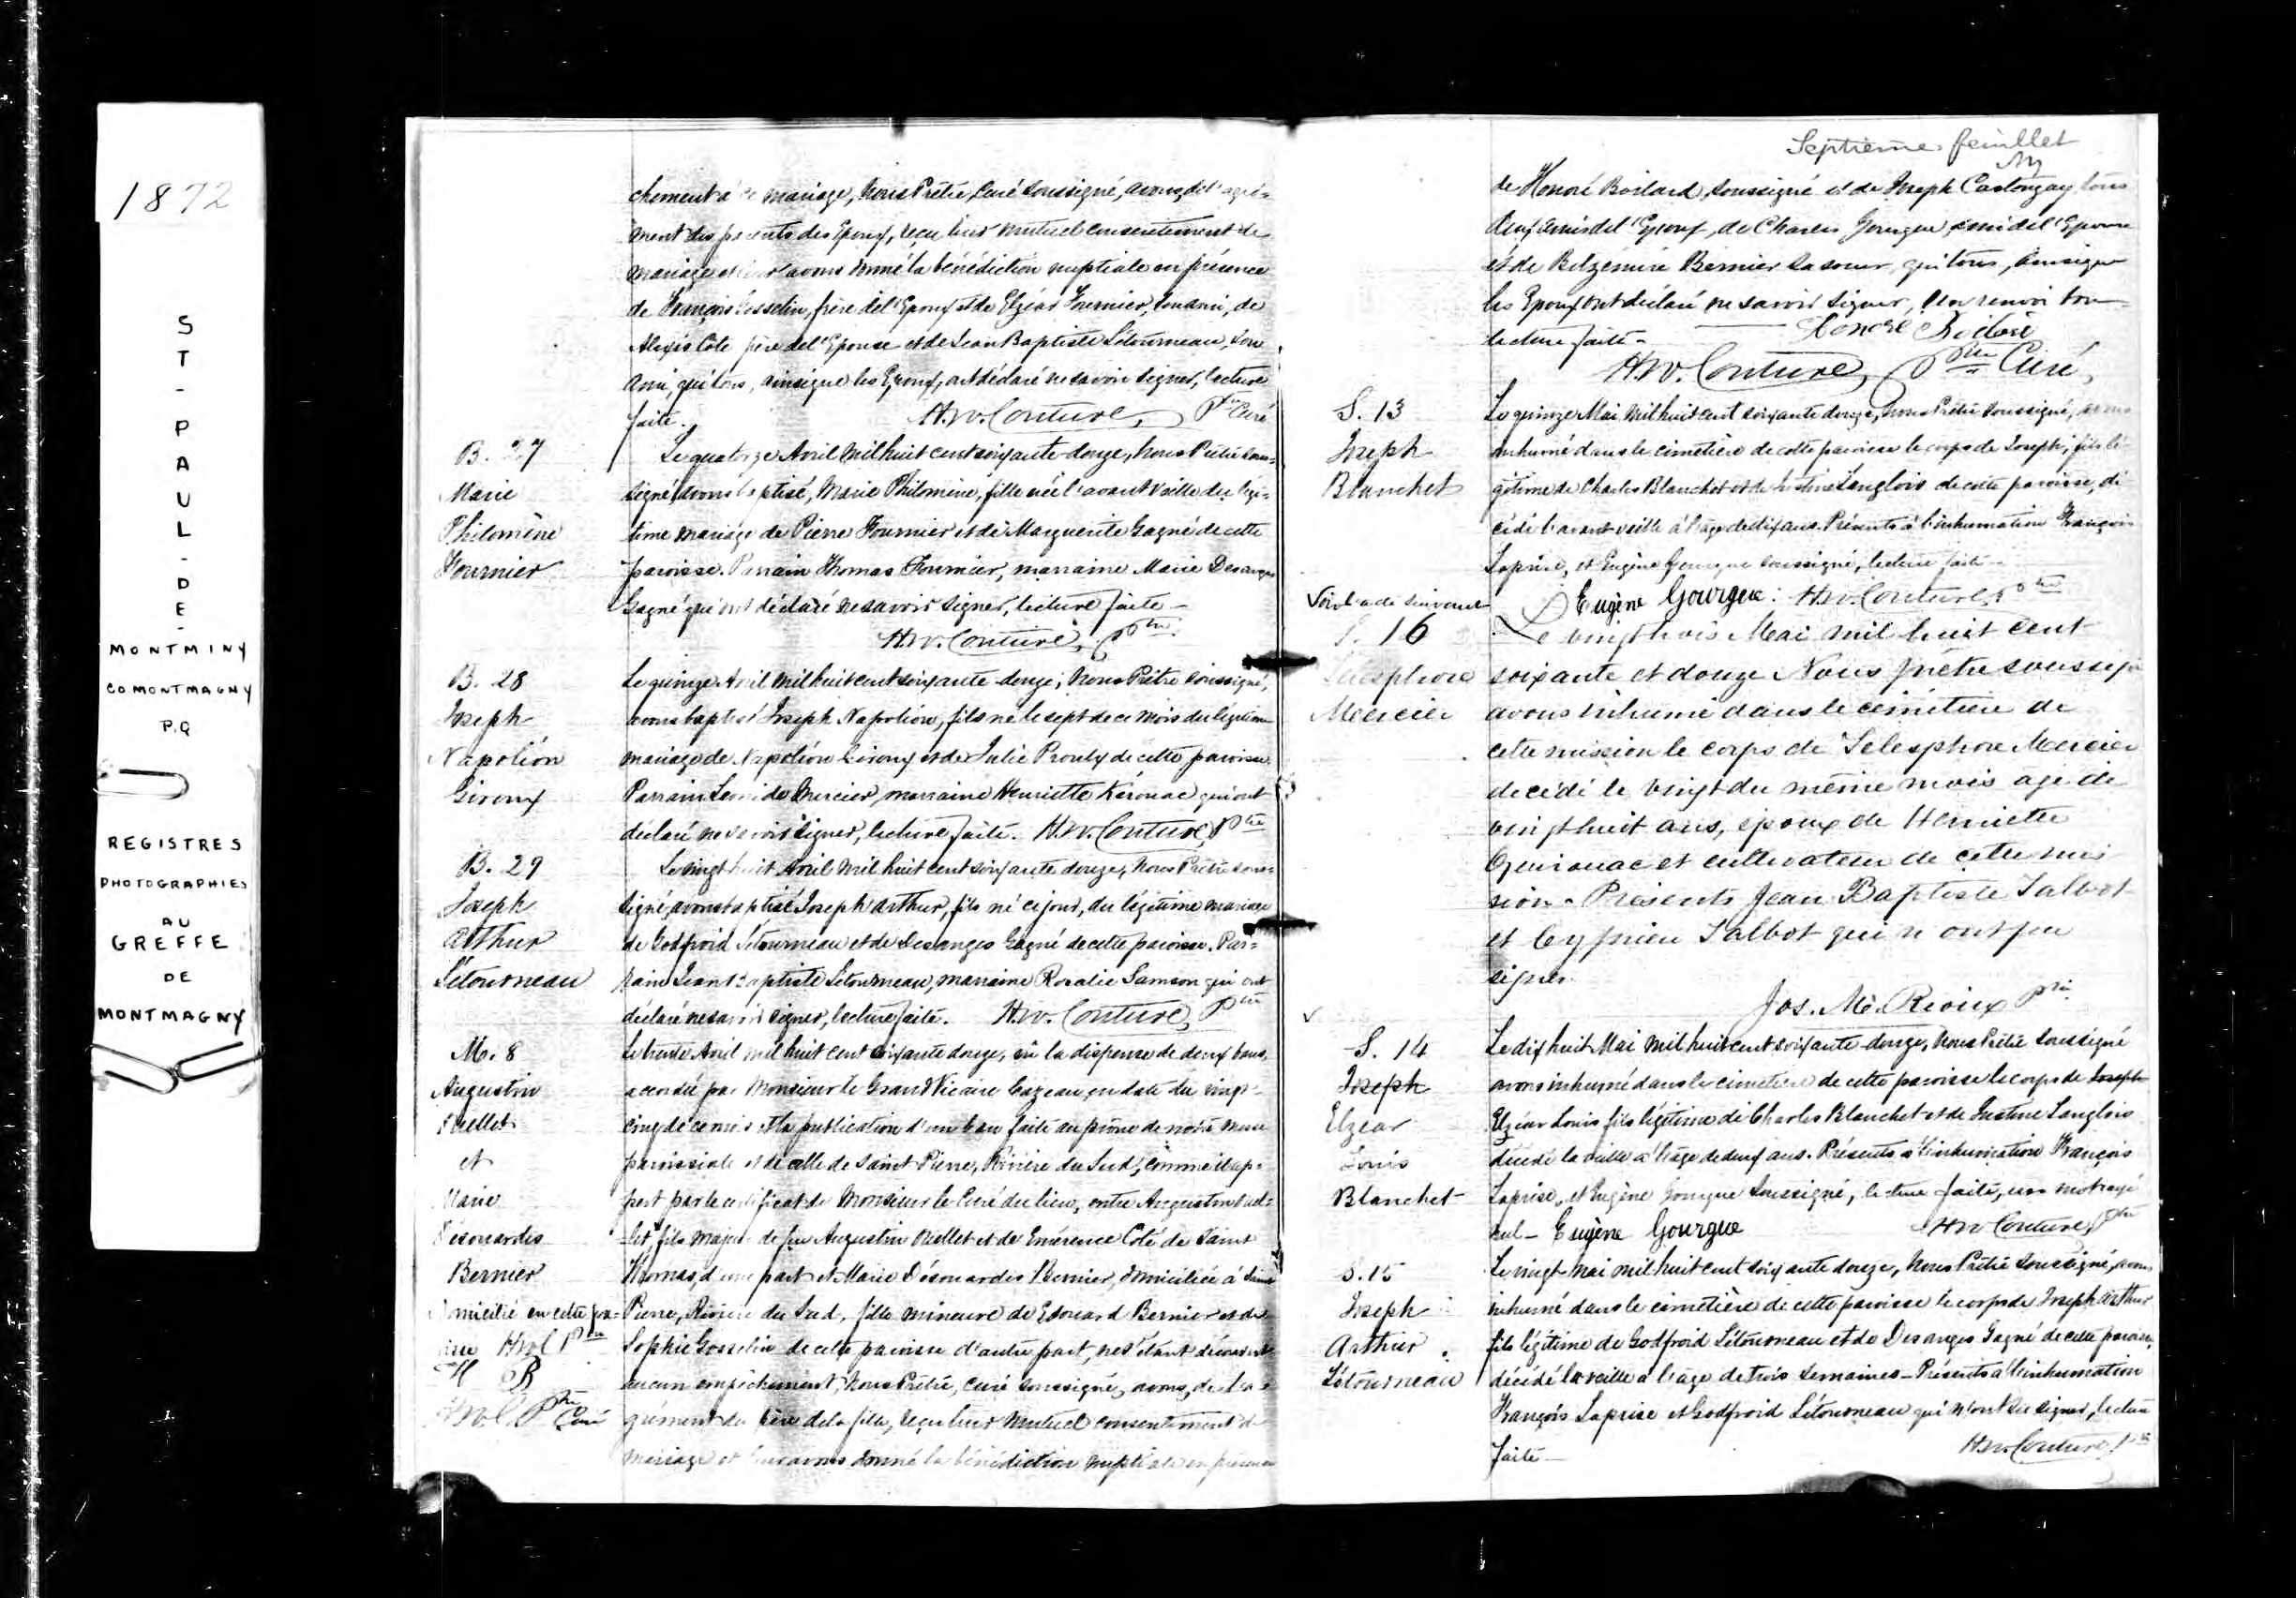 1872
ST-PAUL-DE-
MONTMINY
CO MONTMAGNY
P.Q
REGISTRES
PHOTOGRAPHIES
AU
GREFFE
DE
MONTMAGNY
chement à ce mariage, Nous Prêtre, Curé soussigné, avons, de l'agré-
ment des parents des Epoux, reçu leur mutuel consentement de
mariage et leur avons donné la bénédiction nuptiale en présence
de François Gosselin, frère de l'Epoux et de Elzéar Fournier, son ami, de
Alexis Côte père de l'Epouse et de Jean Baptiste Létourneau, son
ami, qui tous, ainsi que les Epoux, ont déclaré ne savoir signer, lecture
faite. H.W. Couture, Ptre Curé
B. 27
Marie
Philomène
Fournier
Le quatorze Avril mil huit cent soixante-douze, Nous Prêtre sous-
signé, avons baptisé, Marie Philomène, fille née l'avant veille du légi-
time mariage de Pierre Fournier et de Marguerite Gagné de cette
paroisse. Parrain Thomas Fournier, marraine Marie Desanges
Gagné qui ont déclaré ne savoir signer, lecture faite -
H.W. Couture, Ptre
B. 28
Joseph
Napoléon
Giroux
Le quinze Avril mil huit cent soixante-douze, Nous Prêtre soussigné,
avons baptisé Joseph Napoléon, fils né le sept de ce mois du légitime
mariage de Napoléon Giroux et de Julie Proulx de cette paroisse.
Parrain Mercier, marraine Henriette Kérouac qui ont
déclaré ne savoir signer, lecture faite. H.W. Couture, Ptre
B. 29
Joseph
Arthur
Létourneau
Le vingt huit Avril mil huit cent soixante douze, Nous Prêtre sous-
signé, avons baptisé Joseph Arthur, fils né ce jour, du légitime mariage
de Godfroid Létourneau et de Desanges Gagné de cette paroisse. Par-
rain Jean Baptiste Létourneau, marraine Rosalie Samson qui ont
déclaré ne savoir signer, lecture faite. H.W. Couture, Ptre
M. 8
Augustin
Ouellet
et
Marie
Bernier
Domicilié en cette pa-
H.W.C. Ptre
H B
H.W.C. Ptre Curé
Le trente Avril mil huit cent soixante douze, vu la dispense de deux bans,
accordée par Monsieur le Grand Vicaire Cazeau, en date du vingt-
cinq de ce mois et la publication d'un ban faite au prône de notre messe
paroissiale et de celle de Saint-Pierre, Rivière du Sud, comme il ap-
pert par le certificat de Monsieur le Curé du lieu, entre Augustin Ouel-
let, fils majeur de feu Augustin Ouellet et de Emérence Côté de Saint
Thomas, d'une part et Marie Bernier, domiciliée à Saint
Pierre, Rivière du Sud, fille mineure de Edouard Bernier et de
Sophie Gosselin de cette paroisse d'autre part, ne s'étant découvert
aucun empêchement, Nous Prêtre, Curé soussigné, avons, de l'a-
grément du père de la fille, reçu leur mutuel consentement de
mariage et leur avons donné la bénédiction nuptiale en présence
Septième feuillet
de Honoré Boilard, soussigné et de Joseph Castonguay tous
deux amis de l'Epoux, de Charles Gourgue, ami de l'Epouse
et de Belzemire Bernier sa soeur, qui tous, ainsi que
les Epoux ont déclaré ne savoir signer, Un renvoi bon
lecture faite -
H.W. Couture, Ptre Curé,
S. 13
Joseph
Blanchet
Le quinze Mai mil huit cent soixante douze, Nous Prêtre soussigné, avons
inhumé dans le cimetière de cette paroisse le corps de Joseph, fils lé-
gitime de Charles Blanchet et de Justine Langlois de cette paroisse, dé-
cédé l'avant veille à l'âge de dix ans. Présents à l'inhumation François
Laprise, et Eugène Gourgue soussigné, lecture faite -
Eugène Gourgue. H.W. Couture, Ptre
Voir l'acte suivant
S. 16
Télesphore
Mercier
Le vingt trois Mai mil huit cent
soixante et douze Nous prêtre soussigné
avons inhumé dans le cimetière de
cette mission le corps de Télesphore Mercier
decédé le vingt du même mois agé de
vingt huit ans, époux de Henriette
et cultivateur de cette mis
sion. Présents Jean Baptiste Talbot
et Cyprien Talbot qui n'ont pu
signer.
Jos. Me. Rioux Ptre
S. 14
Joseph
Elzear
Louis
Blanchet
Le dix huit Mai mil huit cent soixante-douze, Nous Prêtre soussigné
avons inhumé dans le cimetière de cette paroisse le corps de Joseph
Elzéar Louis fils légitime de Charles Blanchet et de Justine Langlois
décédé la veille à l'âge de deux ans. Présents à l'inhumation François
Laprise, et Eugène Gourgue soussigné, lecture faite, un mot rayé
nul - Eugène Gourgue H.W. Couture, Ptre
S. 15
Joseph
Arthur
Létourneau
Le vingt mai mil huit cent soixante douze, Nous Prêtre soussigné, avons
inhumé dans le cimetière de cette paroisse le corps de Joseph Arthur
fils légitime de Godfroid Létourneau et de Desanges Gagné de cette paroisse,
décédé la veille à l'âge de trois semaines - Présents à l'inhumation
François Laprise et Godfroid Létourneau qui n'ont su signer, lecture
faite - H.W. Couture, Ptre